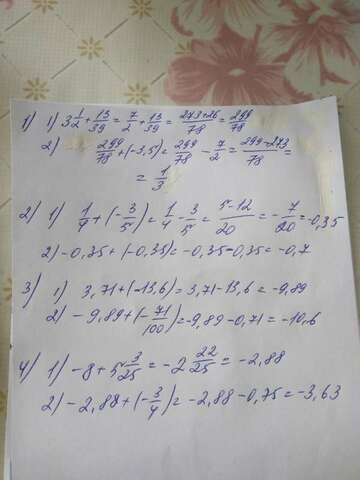 1) 1) 3 1/2 + 13/39 = 7/2 + 13/39 = 273+26/78 = 299/78
2) 299/78 + (-3,5) = 299/78 - 7/2 = 299-273/78 =
= 1/3
2) 1) 1/4 + (-3/5) = 1/4 - 3/5 = 5-12/20 = -7/20 = -0,35
2) -0,35 + (-0,35) = -0,35-0,35 = -0,7
3) 1) 3,71 + (-13,6) = 3,71-13,6 = -9,89
2) -9,89 + (-71/100) = -9,89-0,71 = -10,6
4) 1) -8 + 5 3/25 = -2 22/25 = -2,88
2) -2,88 + (-3/4) = -2,88-0,75 = -3,63